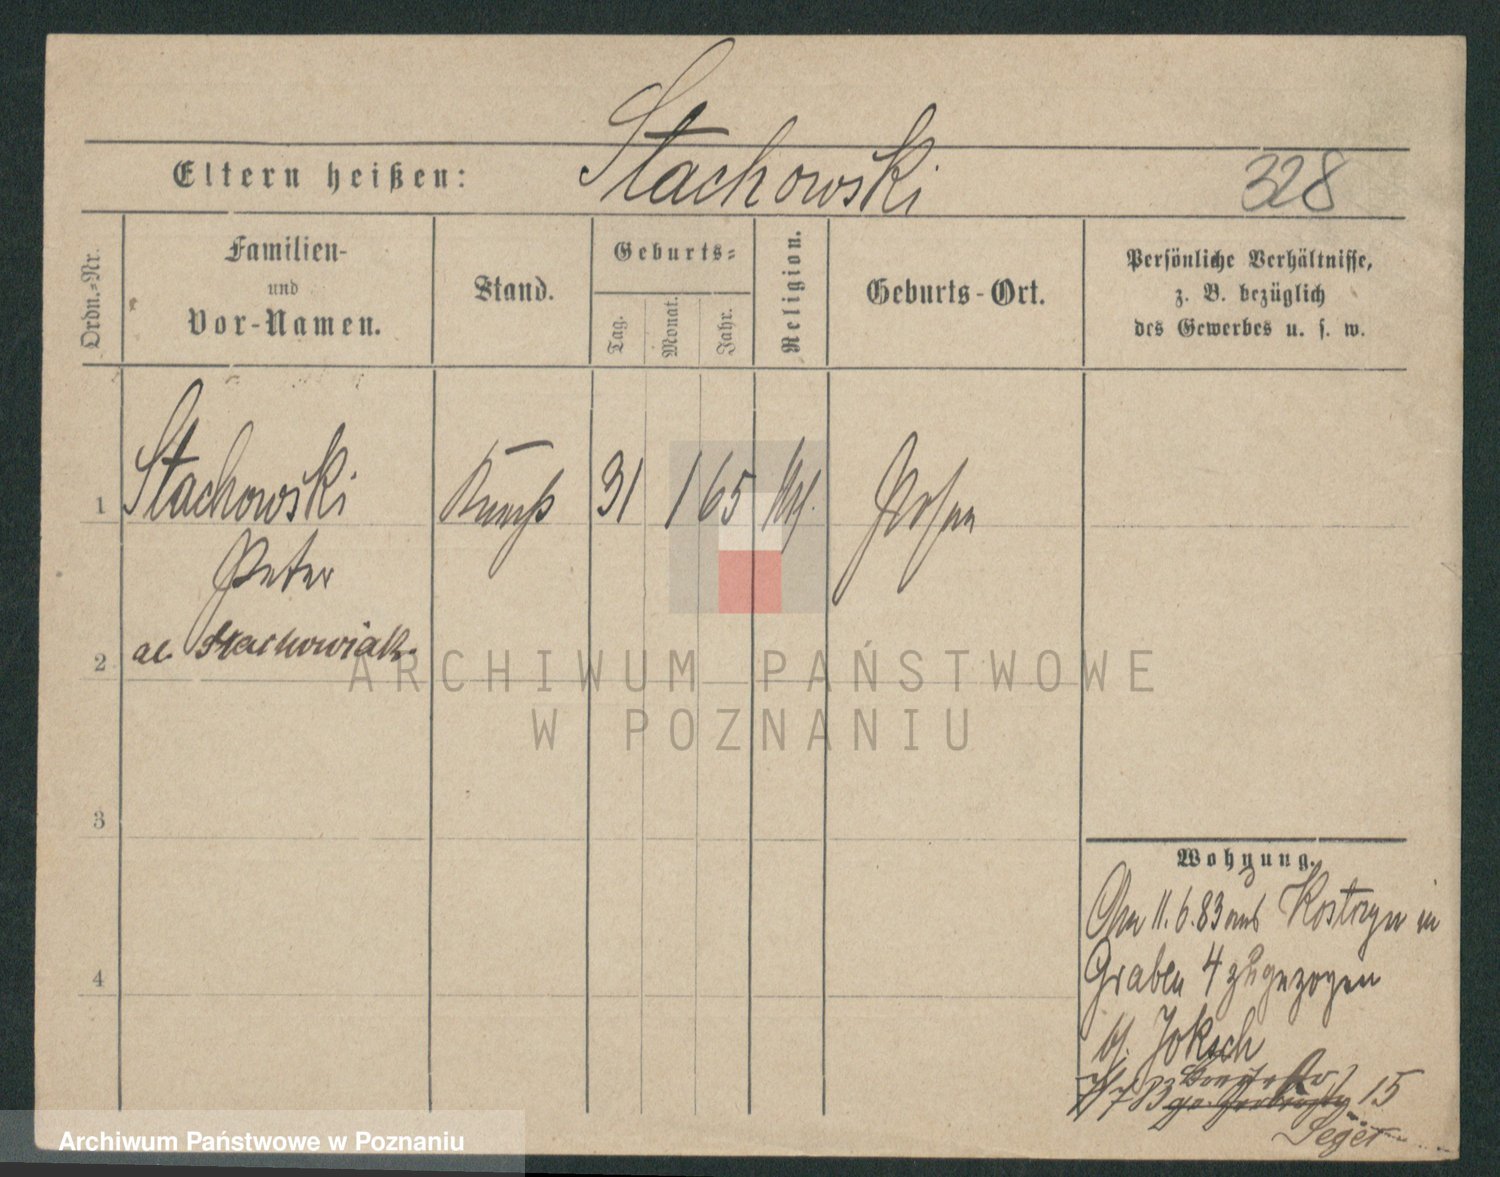 Eltern heißen: Stachowski 328
Ordn.-Nr.
Familien-
und
Vor-Namen.
Stand.
Geburts-
Tag.
Monat.
Jahr.
Religion.
Geburts-Ort.
Persönliche Verhältnisse,
z. B. bezüglich
des Gewerbes u. s. w.
1 Stachowski 31 1 65 Posen
Peter
2 al. Stachowiak
3
4
Wohnung.
Am 11.6.83 aus Kostrzyn in
Graben 4 zugezogen
bei Joksch
7/7 83 15
Seget
ARCHIWUM PAŃSTWOWE
W POZNANIU
Archiwum Państwowe w Poznaniu